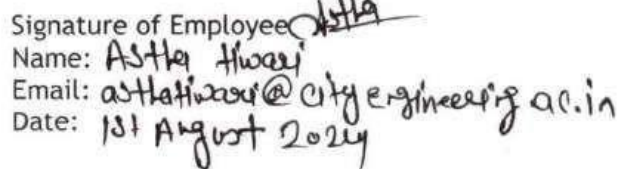 Signature of Employee Astha
Name: Astha Tiwari
Email: asthatiwari@cityengineering.ac.in
Date: 1st August 2024